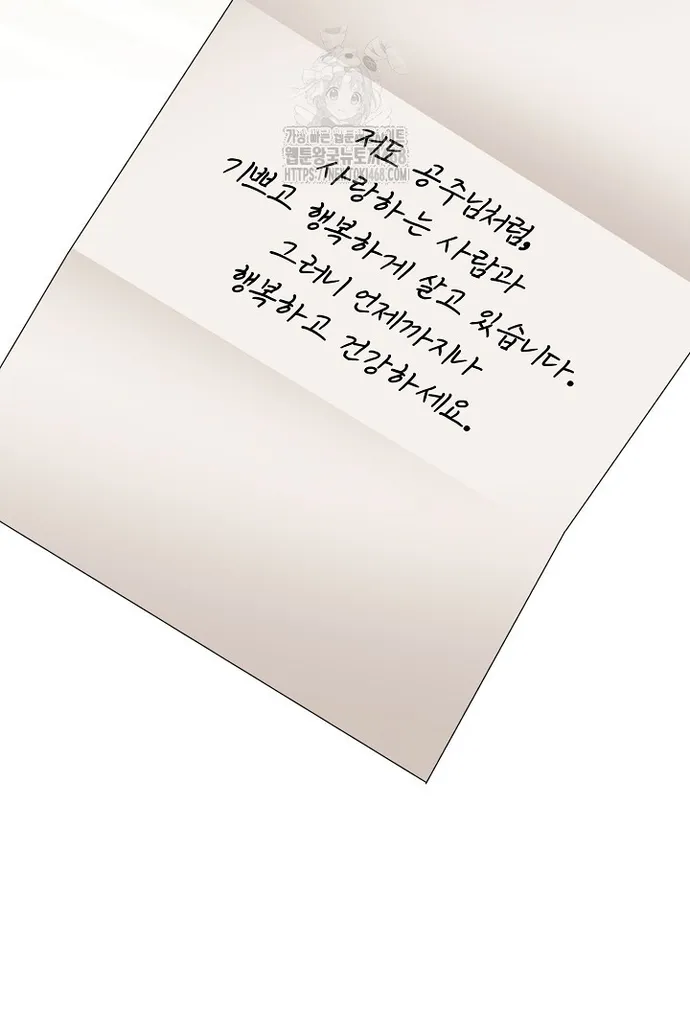 가장 빠른 웹툰 사이트
웹툰왕국뉴토끼468
HTTPS://NEWTOKI468.COM
저도 공주님처럼,
사랑하는 사람과
기쁘고 행복하게 살고 있습니다.
그러니 언제까지나
행복하고 건강하세요.